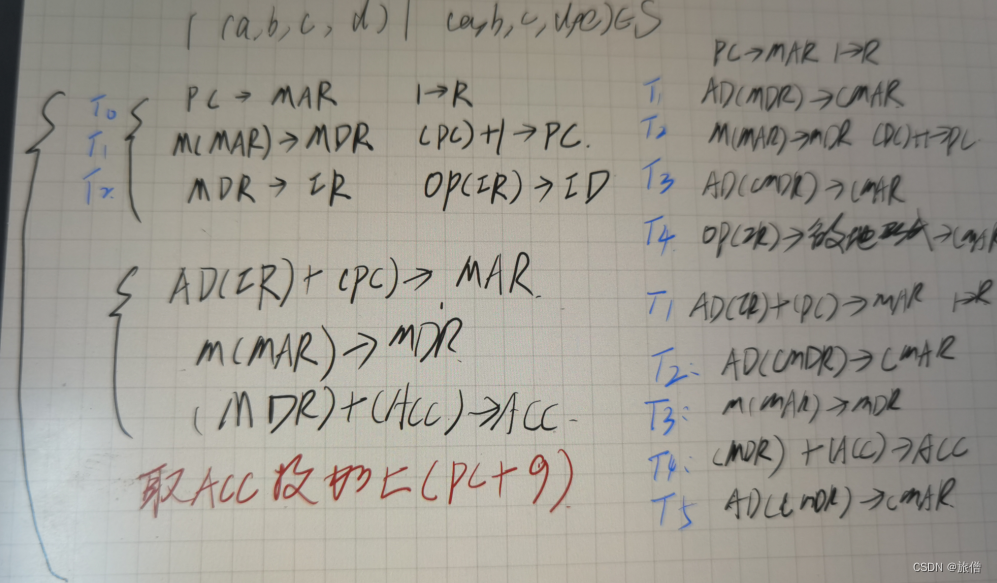 { (a,b,c,d) | (a,b,c,d,e)∈S
T0 PC → MAR 1→R
T1 M(MAR) → MDR (PC)+1→PC.
T2 MDR → IR OP(IR) → ID
AD(IR) + (PC) → MAR.
M(MAR) → MDR
(MDR)+(ACC)→ACC.
取ACC 上(PC+9)
PC→MAR 1→R
T1 AD(MDR)→CMAR
T2 M(MAR)→MDR (PC)+1→PC
T3 AD(CMDR)→CMAR
T4 OP(IR)→ →CMAR
T1 AD(IR)+(PC)→MAR 1→R
T2: AD(CMDR)→CMAR
T3: M(MAR)→MDR
T4: (MDR)+(ACC)→ACC
T5 AD(CMDR)→CMAR
CSDN @旅僧